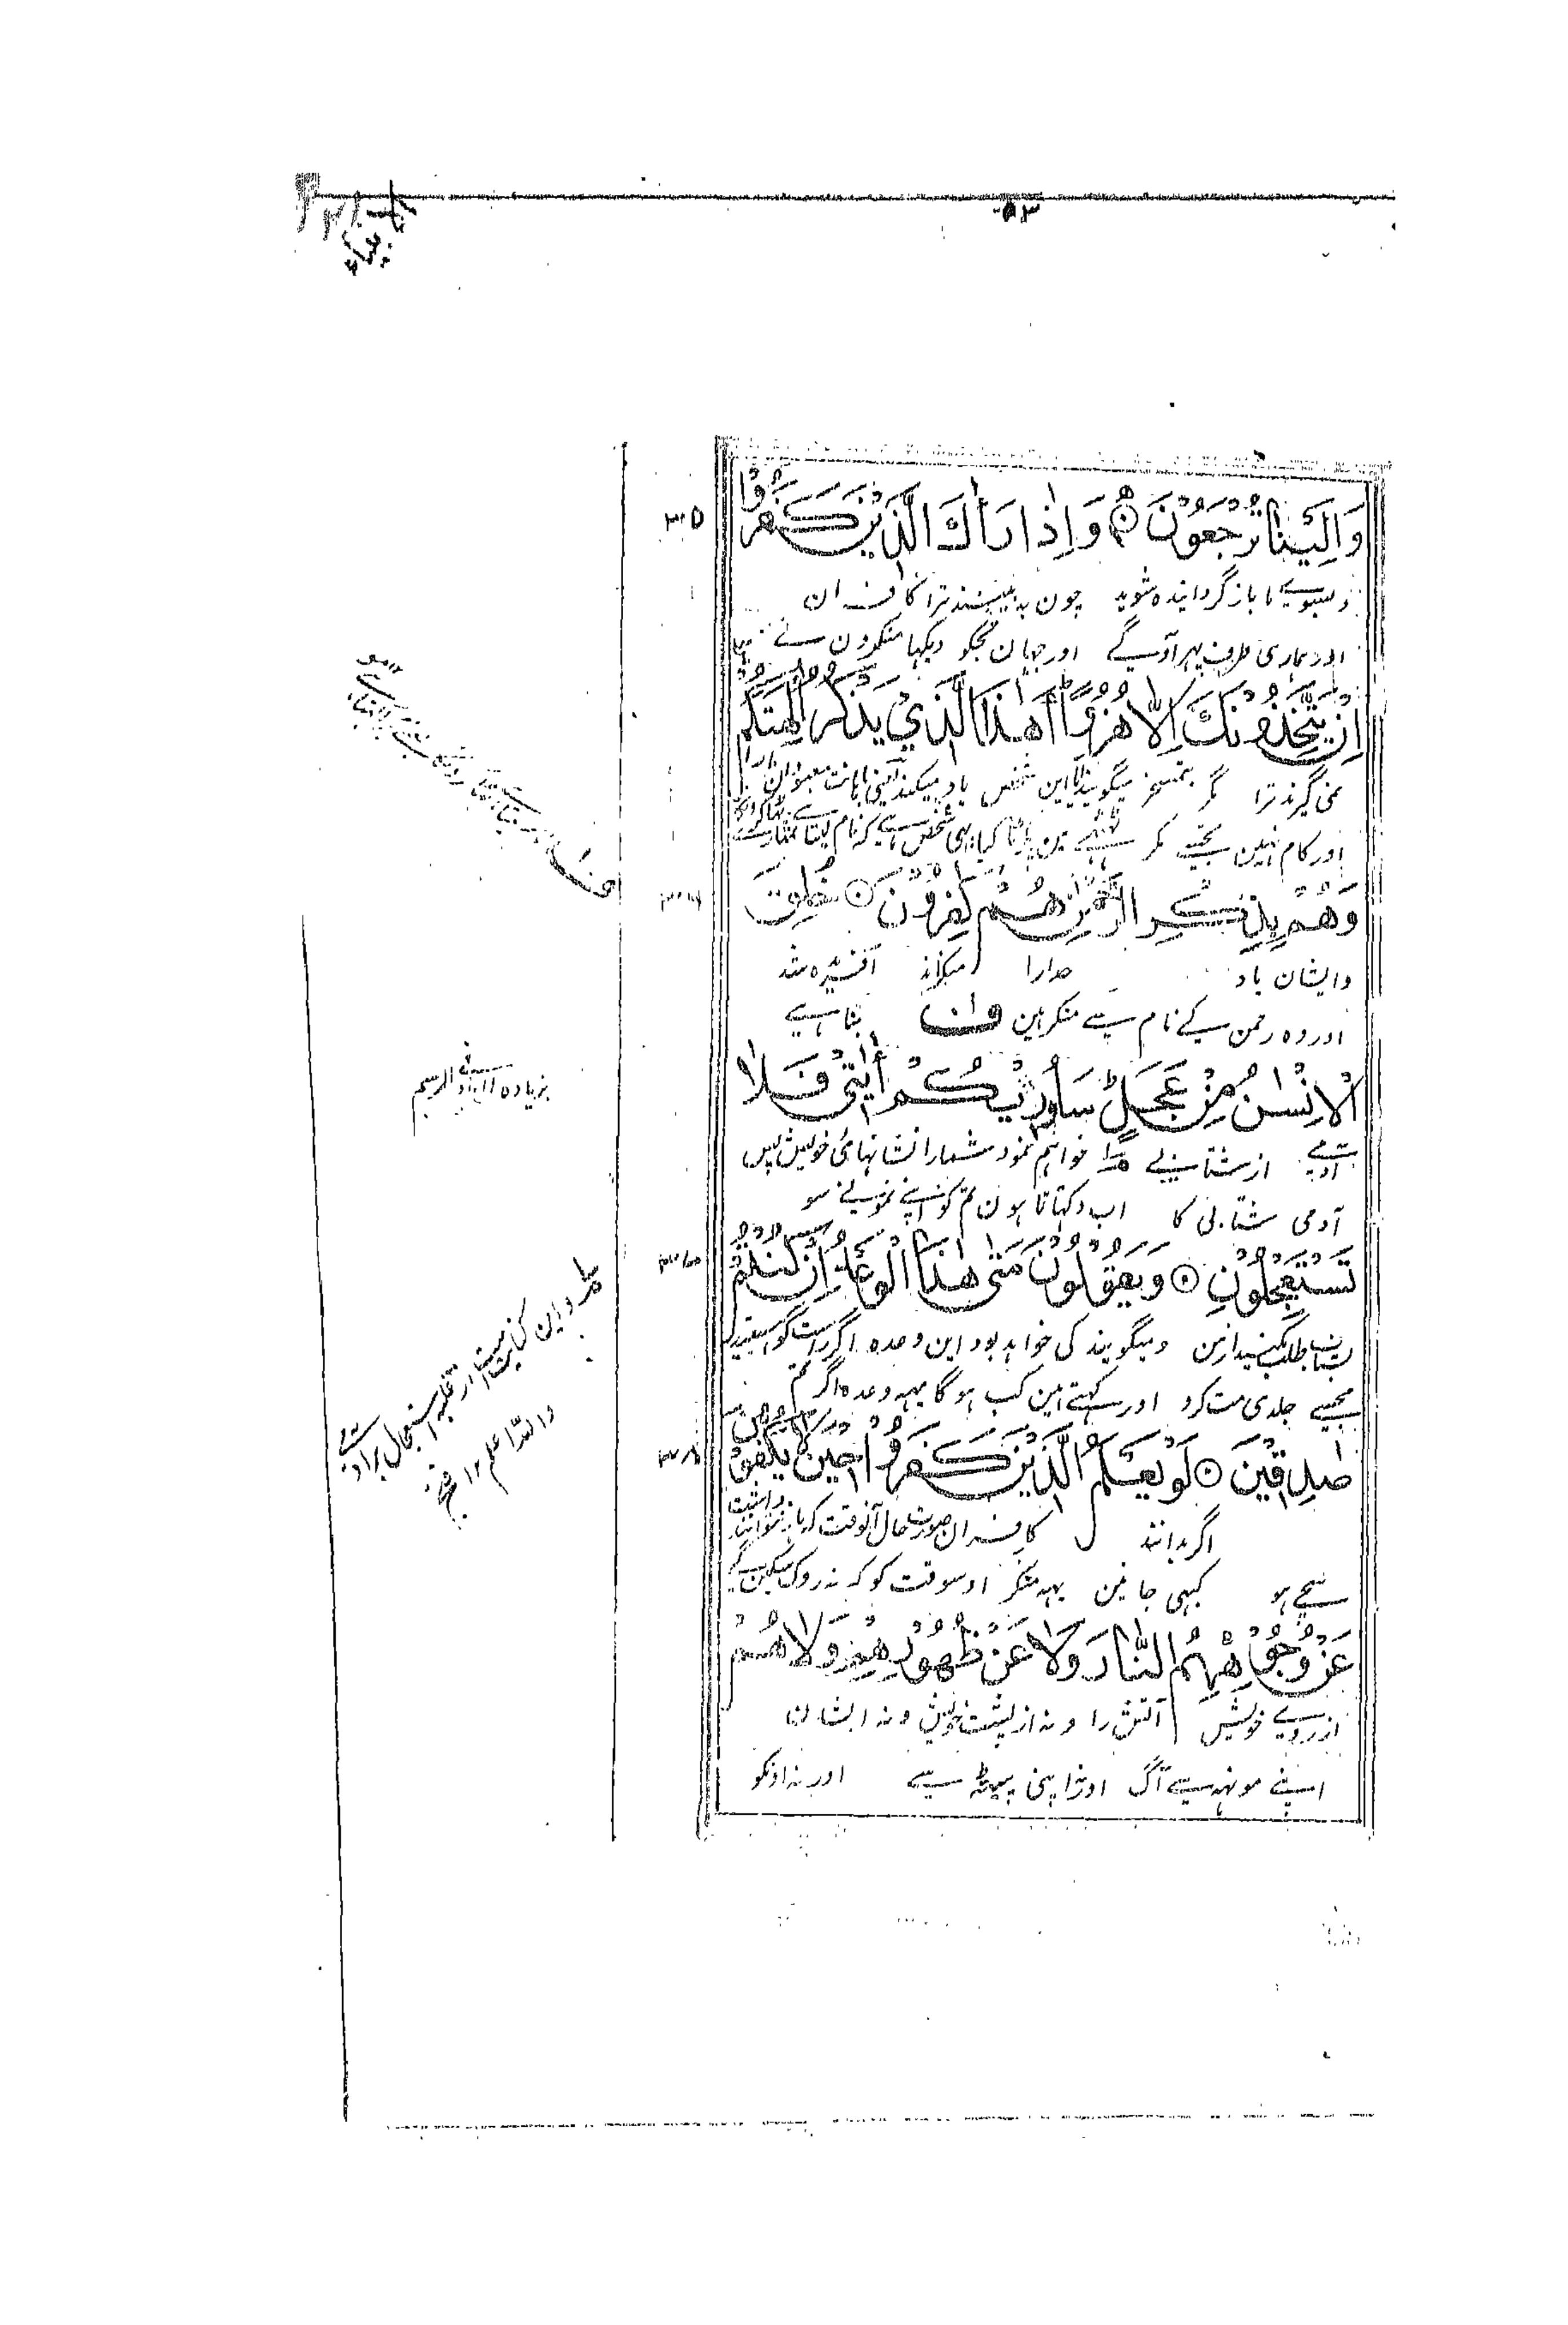 ۵۳
وَاِلَيْنَا تُرْجَعُوْنَ ۝ وَاِذَا رَاٰكَ الَّذِيْنَ كَفَرُوْٓا
۳۵
و بسوے ما بازگردانیده شوید چون به بینند ترا کافران
اور ہماری طرف پہر آؤگے اور جہان تجکو دیکہا منکرون نے
اِنْ يَّتَّخِذُوْنَكَ اِلَّا هُزُوًا اَهٰذَا الَّذِيْ يَذْكُرُ اٰلِهَتَكُمْ
نمی گیرند ترا مگر بتمسخر میگویند آیا این شخص یاد میکند یعنی باہانت معبودان
اور کام نہین تجہسے مگر ٹہٹہے مین پکڑنا کیا یہی شخص ہے کہ نام لیتا
وَهُمْ بِذِكْرِ الرَّحْمٰنِ هُمْ كٰفِرُوْنَ ۝ خُلِقَ
۳۶
و ایشان یاد خدا را منکراند آفریده شد
اور وہ رحمن کے نام سے منکر ہین ف بنا ہے
الْاِنْسٰنُ مِنْ عَجَلٍ سَاُورِيْكُمْ اٰيٰتِيْ فَلَا
آدمی از شتابی خواہم نمود شمارا نشانہائ خویش پس
آدمی شتابی کا اب دکہاتا ہون تم کو اپنے نمونے سو
تَسْتَعْجِلُوْنِ ۝ وَيَقُوْلُوْنَ مَتٰى هٰذَا الْوَعْدُ اِنْ كُنْتُمْ
۳۷
شتاب طلب مکنید از من و میگویند کی خواہد بود این وعده اگر راست گو ہستید
مجہسے جلدی مت کرو اور کہتے ہین کب ہوگا یہہ وعده اگر تم
صٰدِقِيْنَ ۝ لَوْ يَعْلَمُ الَّذِيْنَ كَفَرُوْا حِيْنَ لَا يَكُفُّوْنَ
۳۸
اگر بدانند کافران صورت حال آنوقت کہ باز نتوانند داشت
سچے ہو کبہی جانین یہہ منکر اوسوقت کو کہ نہ روک سکین گے
عَنْ وُّجُوْهِهِمُ النَّارَ وَلَا عَنْ ظُهُوْرِهِمْ وَلَا هُمْ
از روے خویش آتش را و نہ از پشت خویش و نہ ایشان
اپنے مونہہ سے آگ اور نہ اپنی پیٹہہ سے اور نہ اونکو
ف
و این کنایت است از غلبہ استعجال بر آدمی
واللہ اعلم ۱۲ فتح